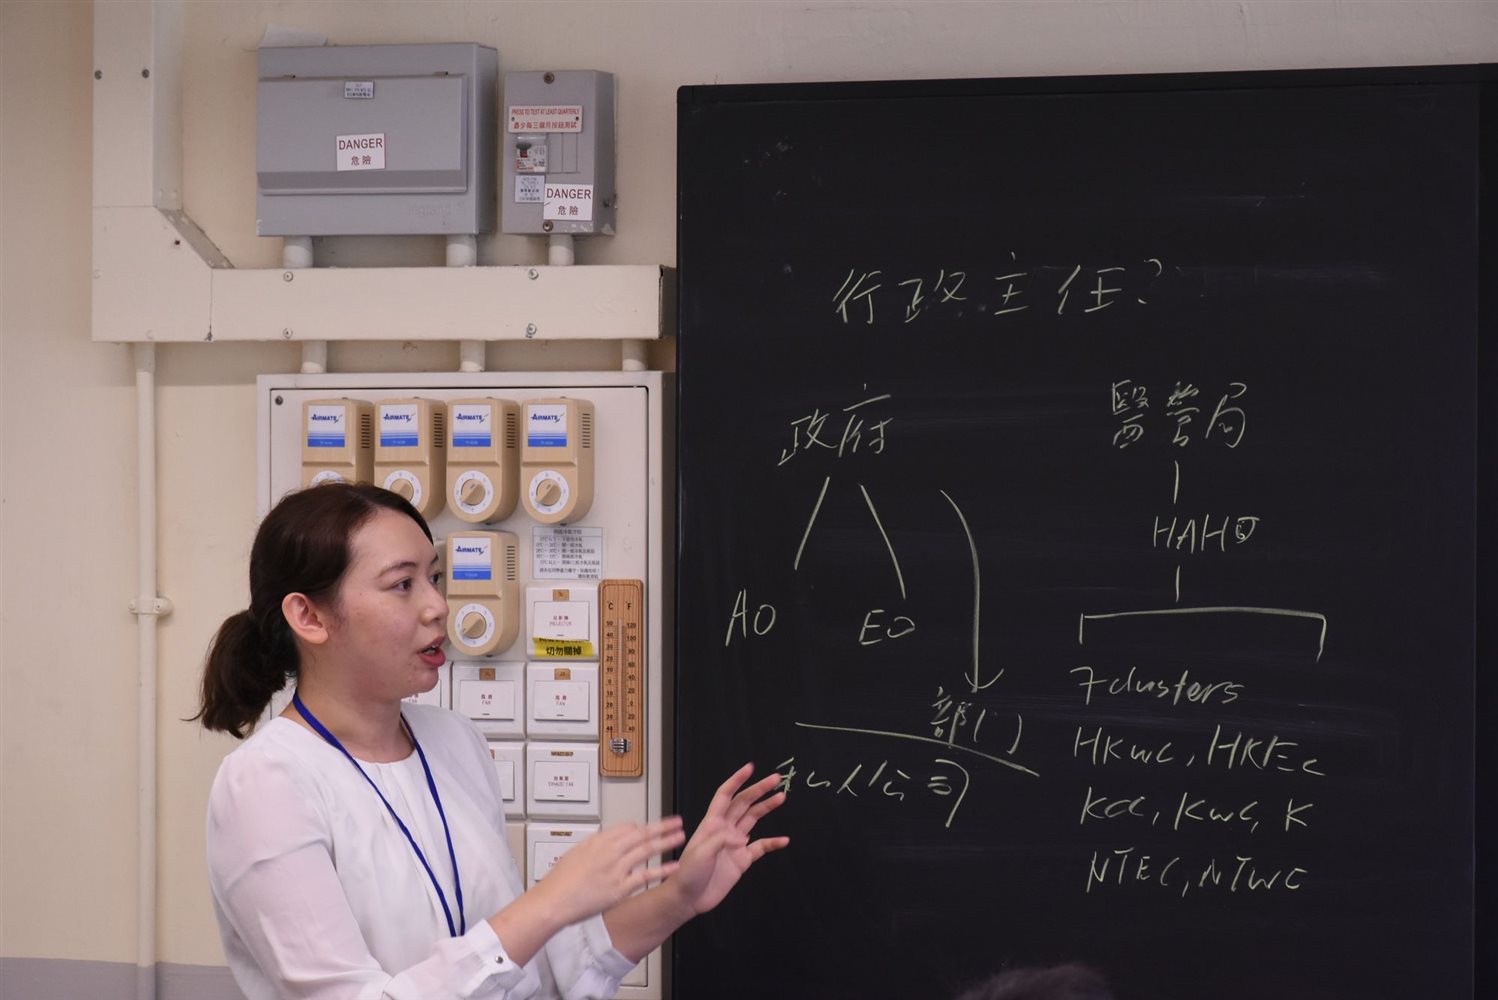 DANGER
危險
PRESS TO TEST AT LEAST QUARTERLY
最少每三個月按鈕測試
DANGER
危險
AIRMATE
AIRMATE
AIRMATE
AIRMATE
AIRMATE
°C °F
PROJECTOR
切勿關掉
FAN
FAN
EXHAUST FAN
行政主任?
政府
醫管局
HAHO
AO
EO
部门
私人公司
7 clusters
HKWC, HKEC
KCC, KWC, K
NTEC, NTWC